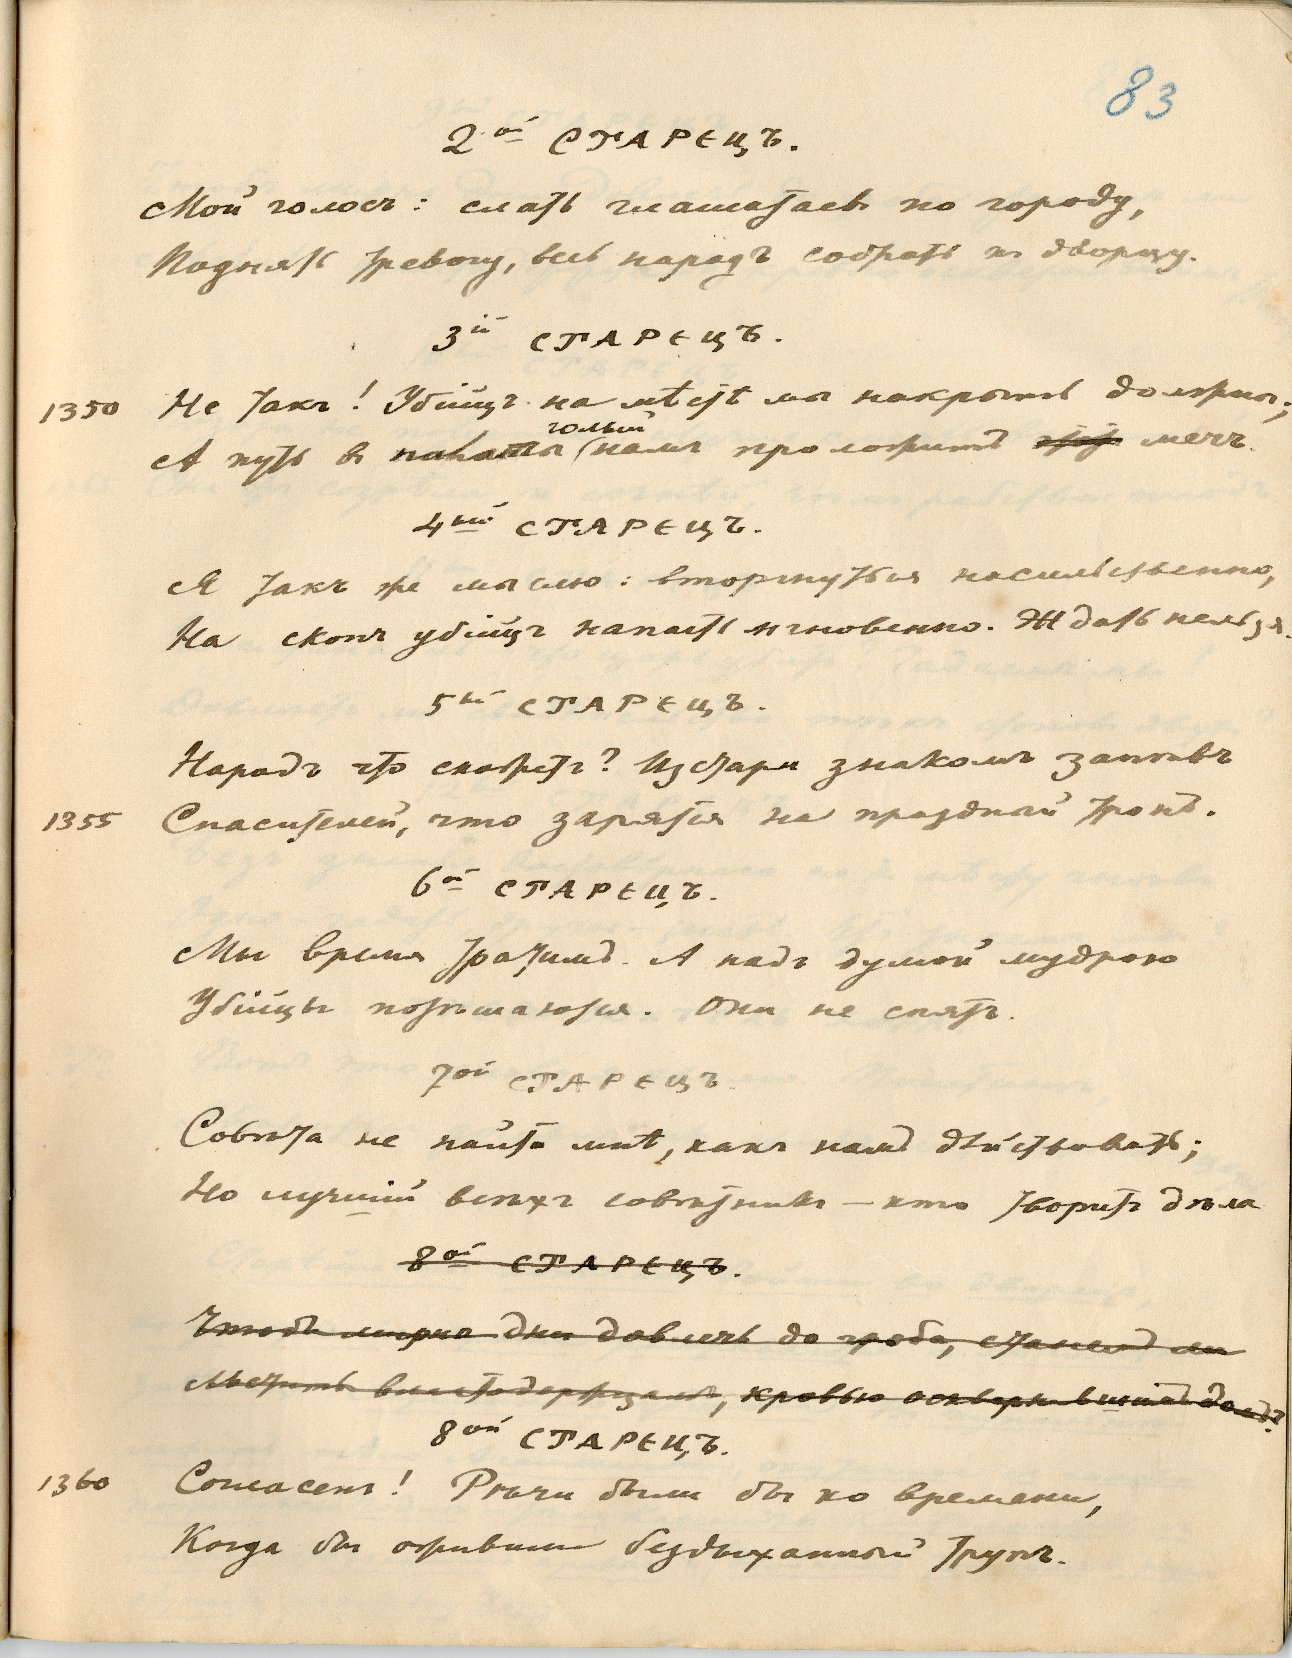 83
2ой СТАРЕЦЪ.
Мой голосъ: слать глашатаевъ по городу,
Поднять тревогу, весь народъ собрать къ дворцу.
3ій СТАРЕЦЪ.
1350 Не такъ! Убійцъ на мѣстѣ мы накрыть должны;
голый
А путь въ палаты намъ проложитъ мечъ.
4ый СТАРЕЦЪ.
Я такъ же мыслю: вторгнуться насильственно,
На скопъ убійцъ напасть мгновенно. Ждать нельзя.
5ый СТАРЕЦЪ.
Народъ что скажетъ? Изстари знакомъ запѣвъ
1355 Спасителей, что зарятся на праздный тронъ.
6ой СТАРЕЦЪ.
Мы время тратимъ. А надъ думой мудрою
Убійцы потѣшаются. Они не спятъ.
7ой СТАРЕЦЪ
Совѣта не найти мнѣ, какъ намъ дѣйствовать;
Но лучшій всѣхъ совѣтникъ – кто творитъ дѣла
8ой СТАРЕЦЪ.
Чтобъ мирно дни довлечь до гроба, станемъ ли
Мы чтить властодержцами, кровью осквернившихъ домъ?
8ой СТАРЕЦЪ.
1360 Согласенъ! Рѣчи были бы ко времени,
Когда бы оживили бездыханный трупъ.